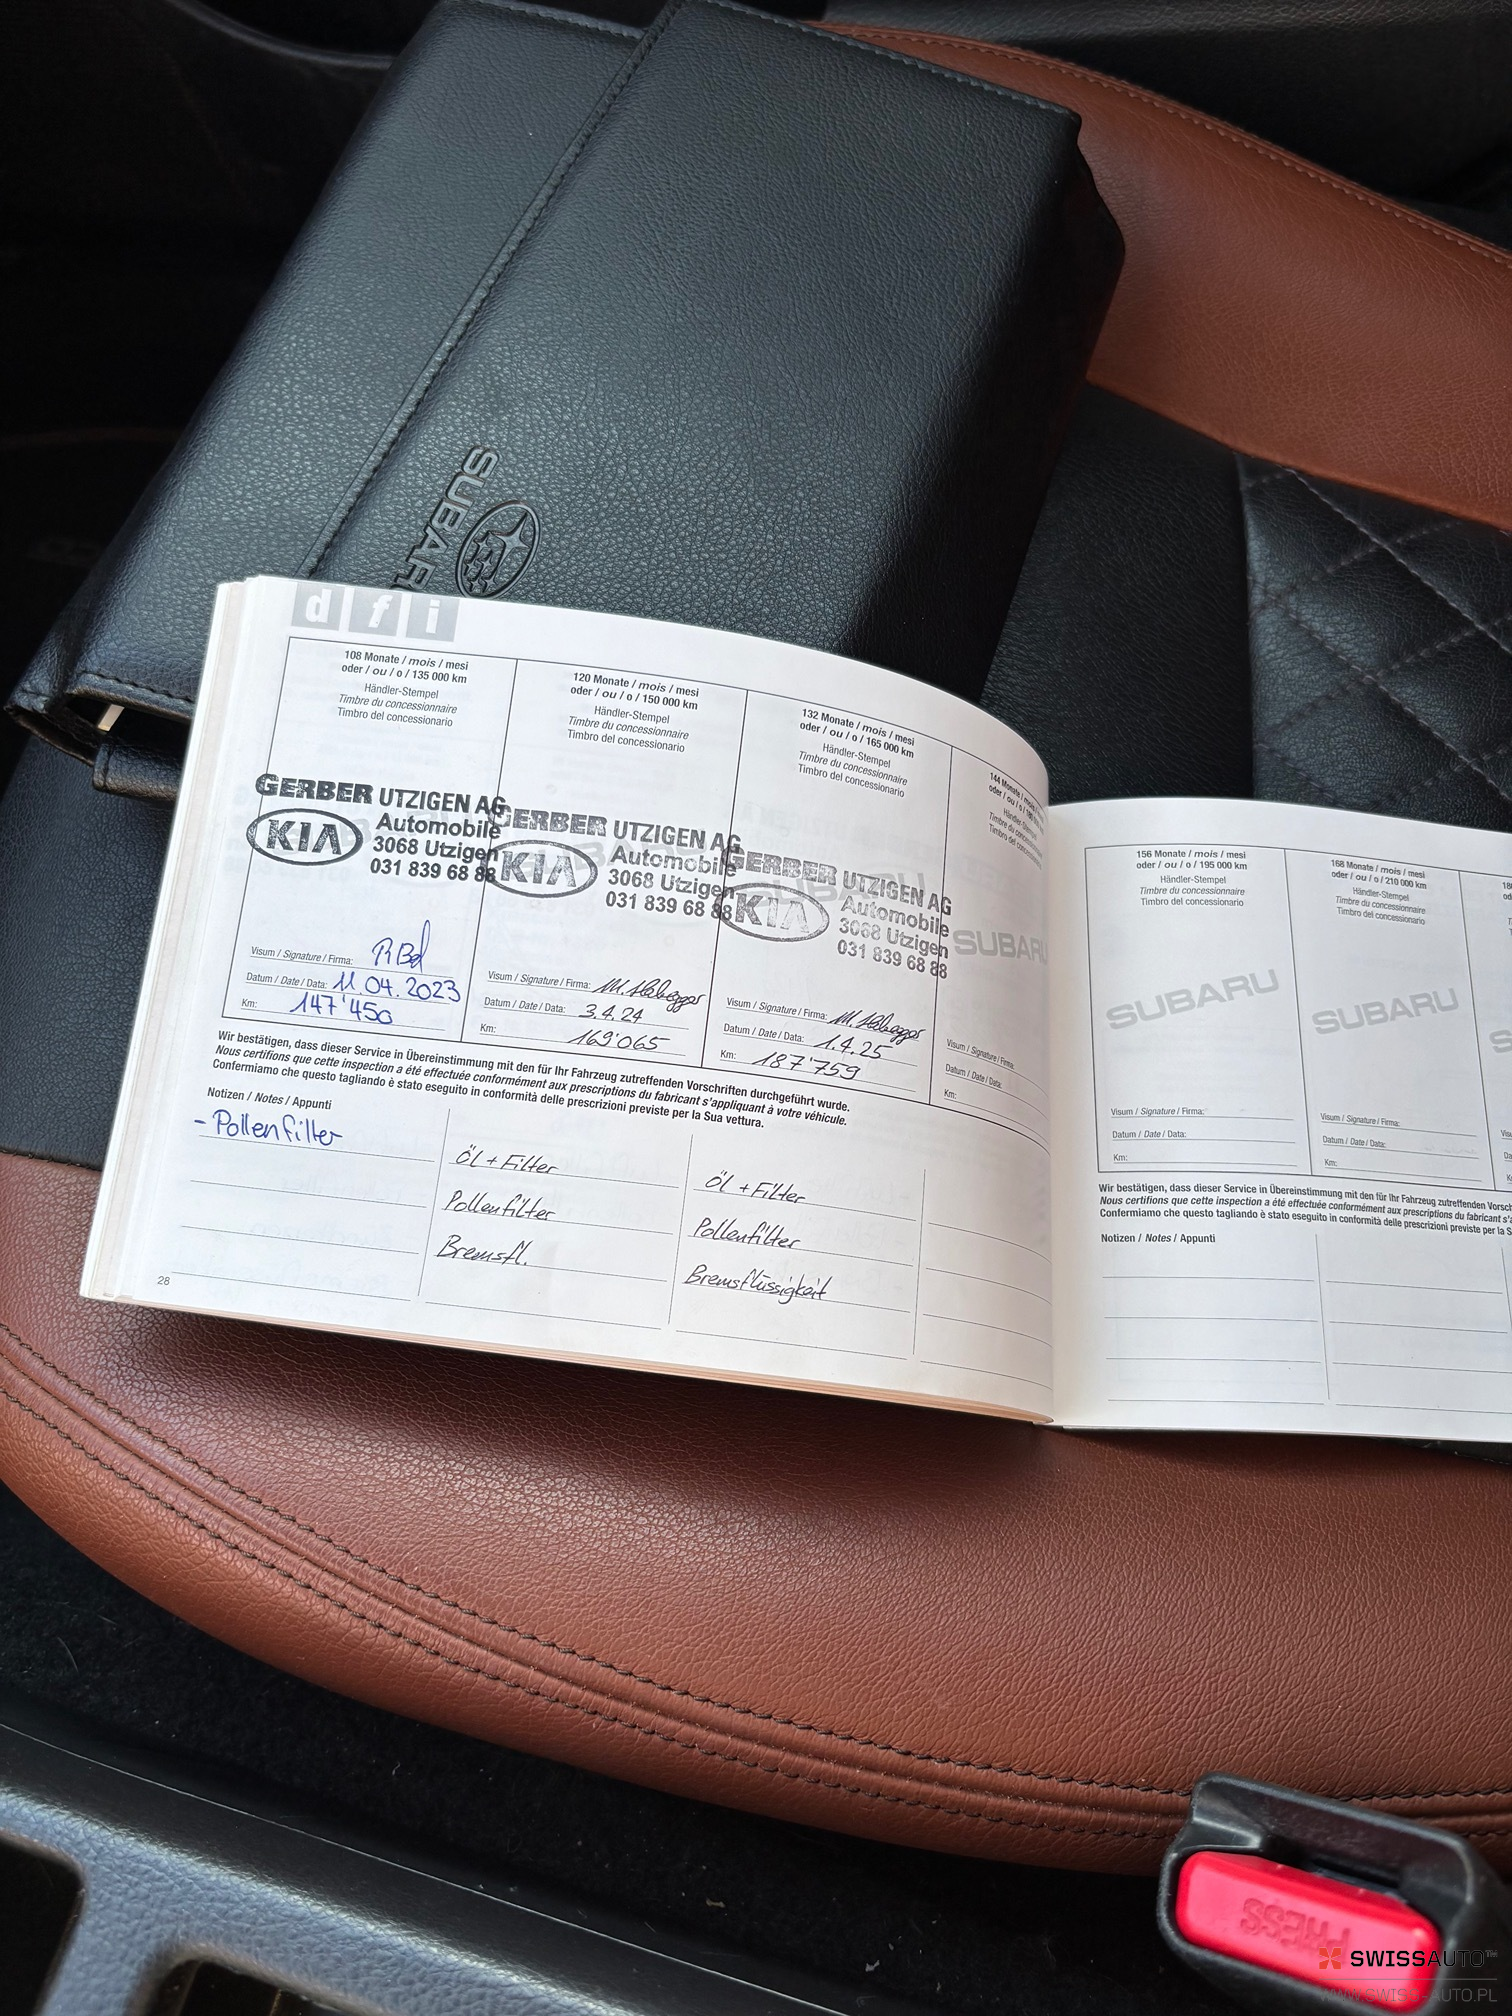 SUBARU
d f i
108 Monate / mois / mesi
oder / ou / o / 135 000 km
Händler-Stempel
Timbre du concessionnaire
Timbro del concessionario
GERBER UTZIGEN AG
KIA
Automobile
3068 Utzigen
031 839 68 88
Visum / Signature / Firma:
Datum / Date / Data: 11.04.2023
Km: 147'450
120 Monate / mois / mesi
oder / ou / o / 150 000 km
Händler-Stempel
Timbre du concessionnaire
Timbro del concessionario
GERBER UTZIGEN AG
KIA
Automobile
3068 Utzigen
031 839 68 88
Visum / Signature / Firma:
Datum / Date / Data: 3.4.24
Km: 169'065
132 Monate / mois / mesi
oder / ou / o / 165 000 km
Händler-Stempel
Timbre du concessionnaire
Timbro del concessionario
GERBER UTZIGEN AG
KIA
Automobile
3068 Utzigen
031 839 68 88
Visum / Signature / Firma:
Datum / Date / Data: 1.4.25
Km: 187'759
144 Monate / mois / mesi
oder / ou / o /
Händler-Stempel
Timbre du
Timbro del
SUBARU
Visum / Signature / Firma:
Datum / Date / Data:
Km:
Wir bestätigen, dass dieser Service in Übereinstimmung mit den für Ihr Fahrzeug zutreffenden Vorschriften durchgeführt wurde.
Nous certifions que cette inspection a été effectuée conformément aux prescriptions du fabricant s'appliquant à votre véhicule.
Confermiamo che questo tagliando è stato eseguito in conformità delle prescrizioni previste per la Sua vettura.
Notizen / Notes / Appunti
- Pollenfilter
Öl + Filter
Pollenfilter
Bremsfl.
Öl + Filter
Pollenfilter
Bremsflüssigkeit
28
156 Monate / mois / mesi
oder / ou / o / 195 000 km
Händler-Stempel
Timbre du concessionnaire
Timbro del concessionario
SUBARU
Visum / Signature / Firma:
Datum / Date / Data:
Km:
168 Monate / mois / mesi
oder / ou / o / 210 000 km
Händler-Stempel
Timbre du concessionnaire
Timbro del concessionario
SUBARU
Visum / Signature / Firma:
Datum / Date / Data:
Km:
Wir bestätigen, dass dieser Service in Übereinstimmung mit den für Ihr Fahrzeug zutreffenden
Nous certifions que cette inspection a été effectuée conformément aux prescriptions du fabricant
Confermiamo che questo tagliando è stato eseguito in conformità delle prescrizioni previste per la
Notizen / Notes / Appunti
PRESS
SWISSAUTO™
WWW.SWISS-AUTO.PL